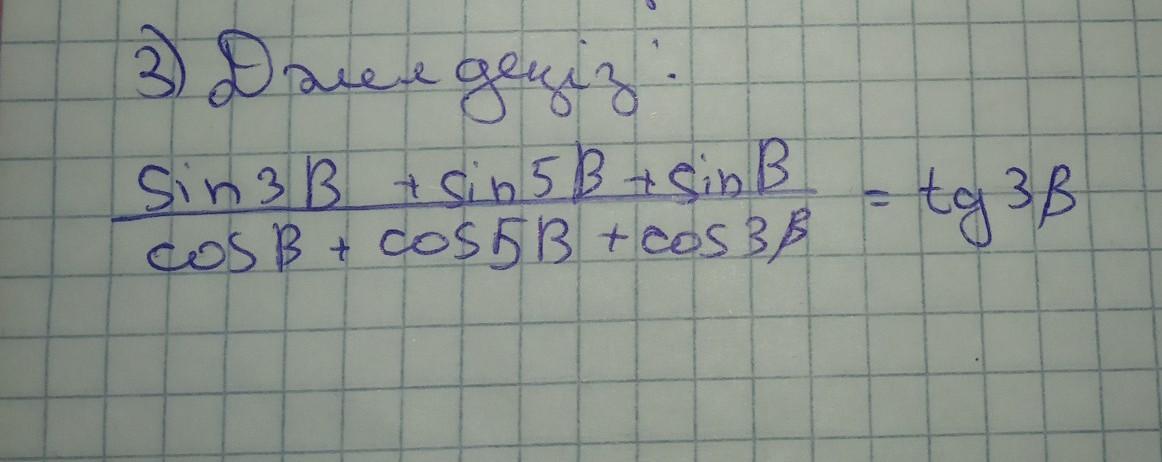 3) Дәлелдеңіз:
sin3β + sin5β + sinβ
cosβ + cos5β + cos3β
= tg3β